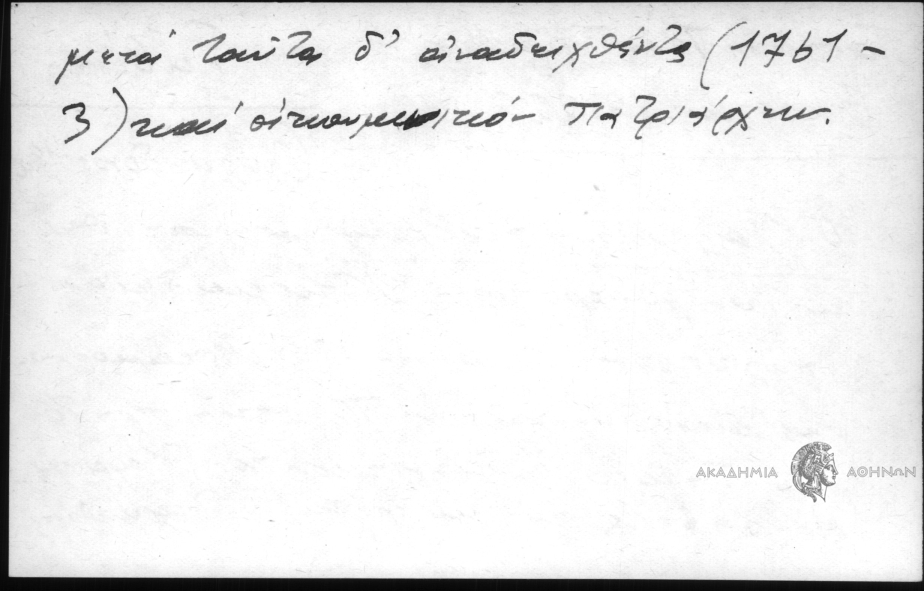 μετά ταῦτα δ' ἀναδειχθέντα (1761 -
3) καί οἰκουμενικόν Πατριάρχην.
ΑΚΑΔΗΜΙΑ ΑΘΗΝΩΝ